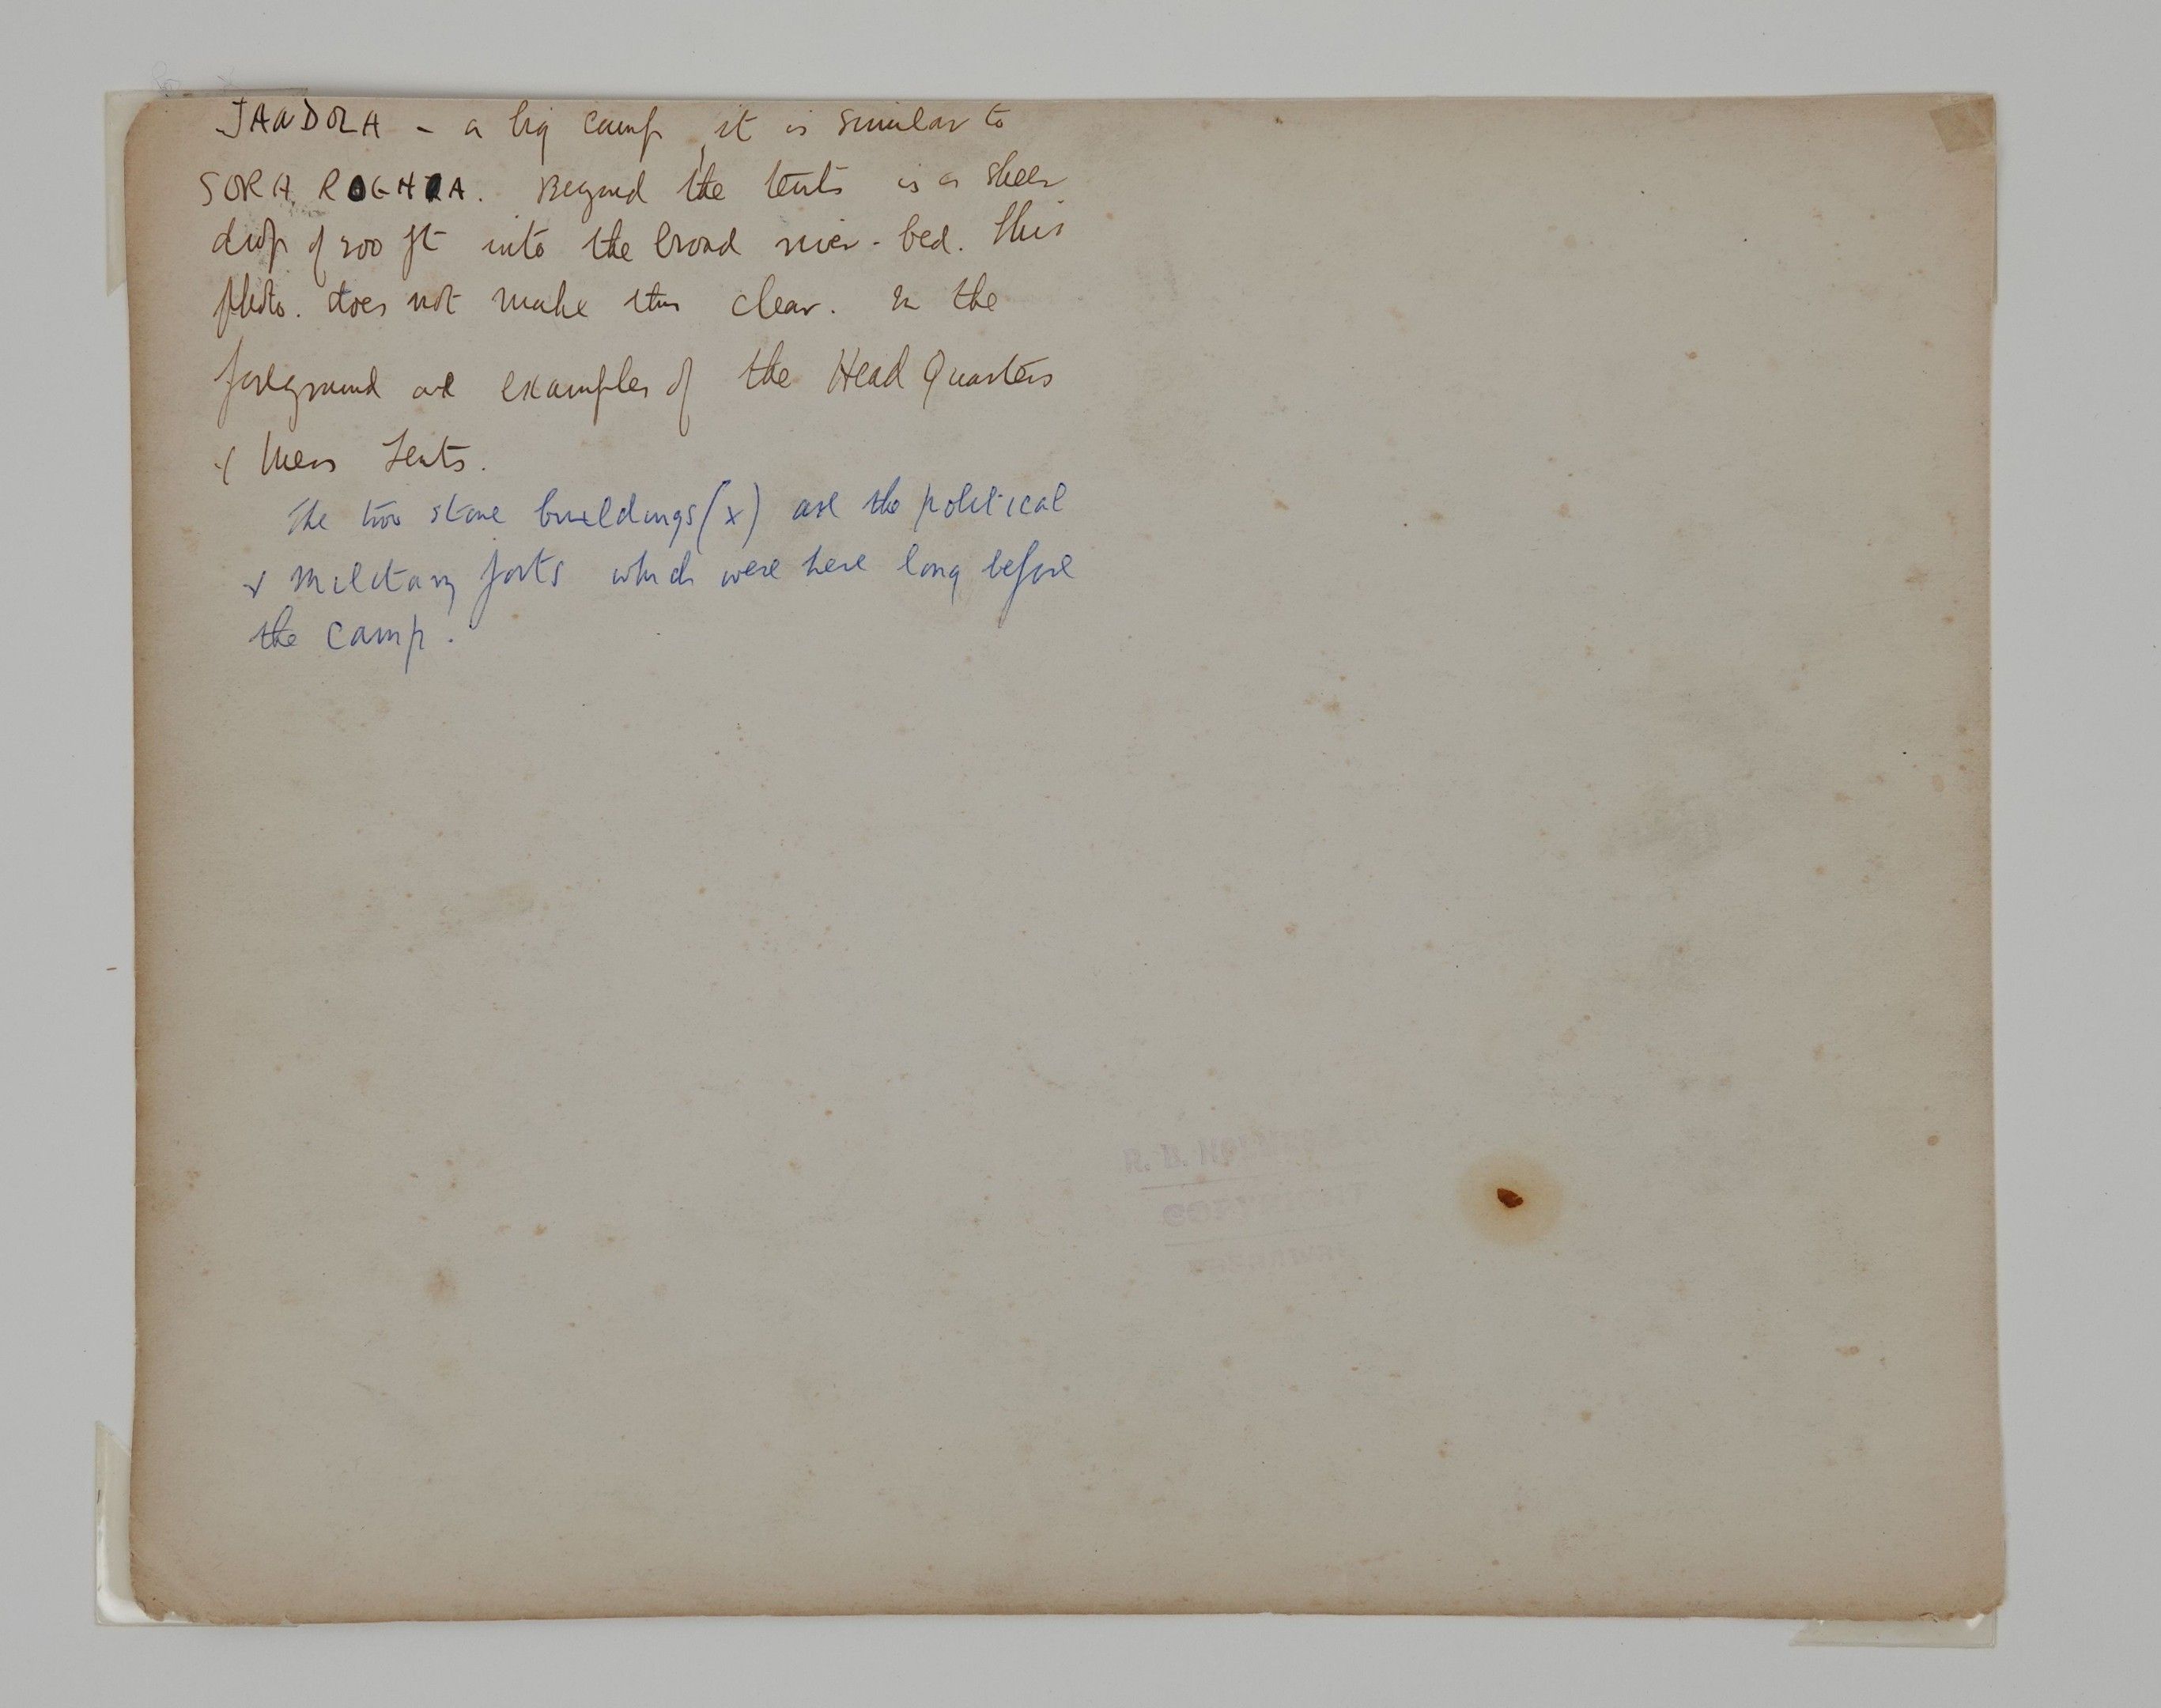 JANDOLA - a big camp, it is similar to
SORA ROGHZA. Beyond the tents is a sheer
drop of 200 ft into the broad river-bed. This
photo. does not make this clear. In the
foreground are examples of the Head Quarters
& Mess Tents.
The two stone buildings (x) are the political
& military forts which were here long before
the camp.
R. B. HOLMES &
COPYRIGHT
PESHAWAR